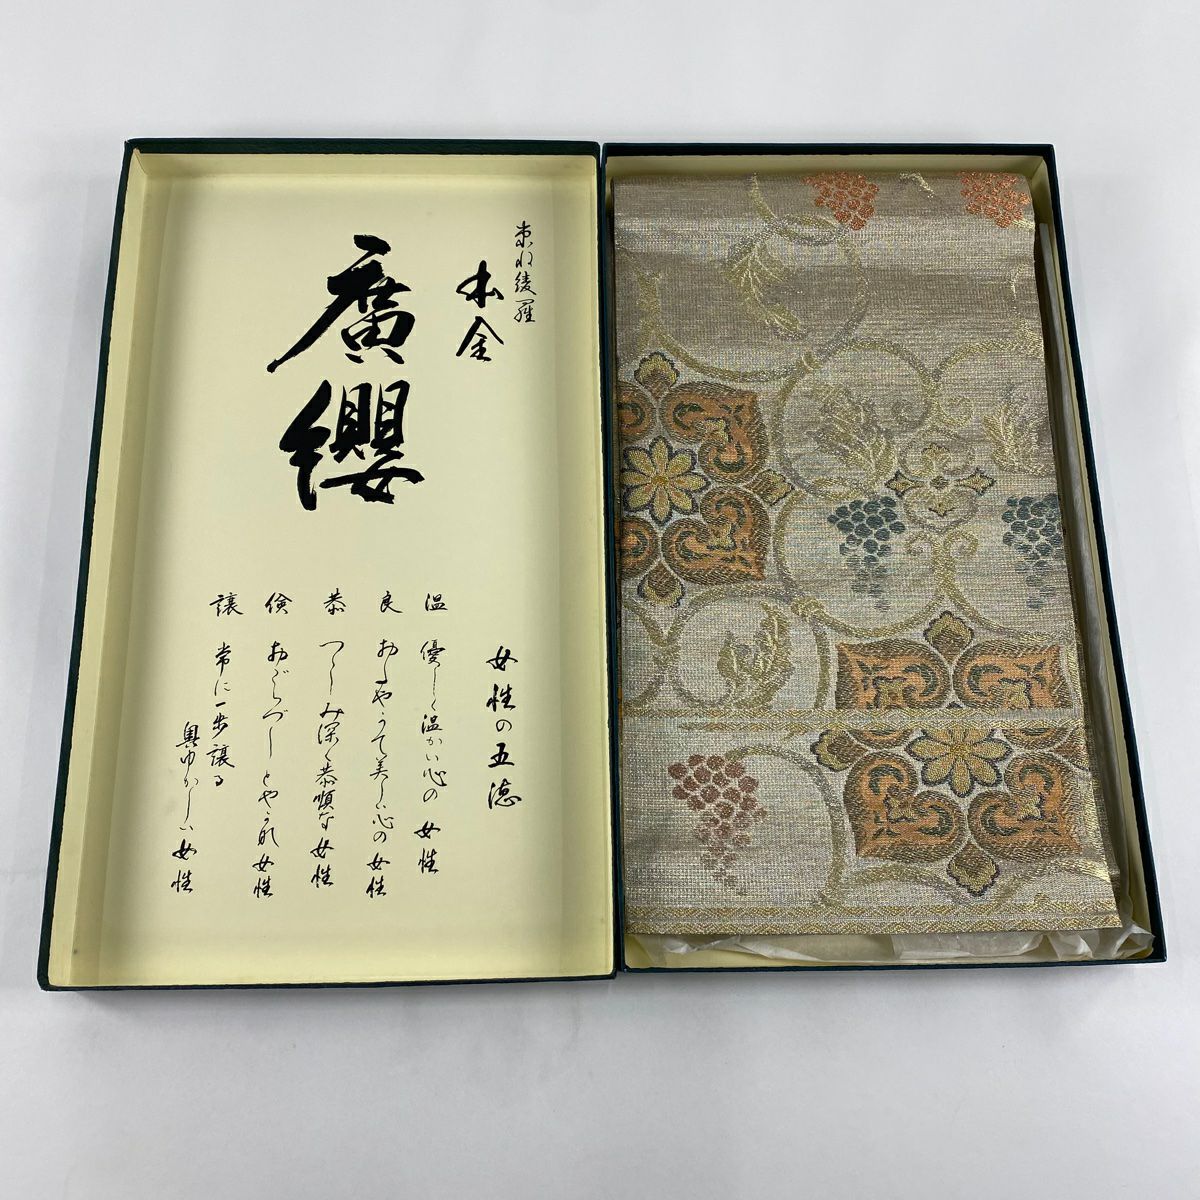 束ね綾羅
本金
廣纓
女性の五徳
温 優しく温かい心の女性
良 おだやかで美しい心の女性
恭 つゝしみ深く恭順な女性
倹 おごらづしとやかな女性
譲 常に一歩譲る
奥ゆかしい女性